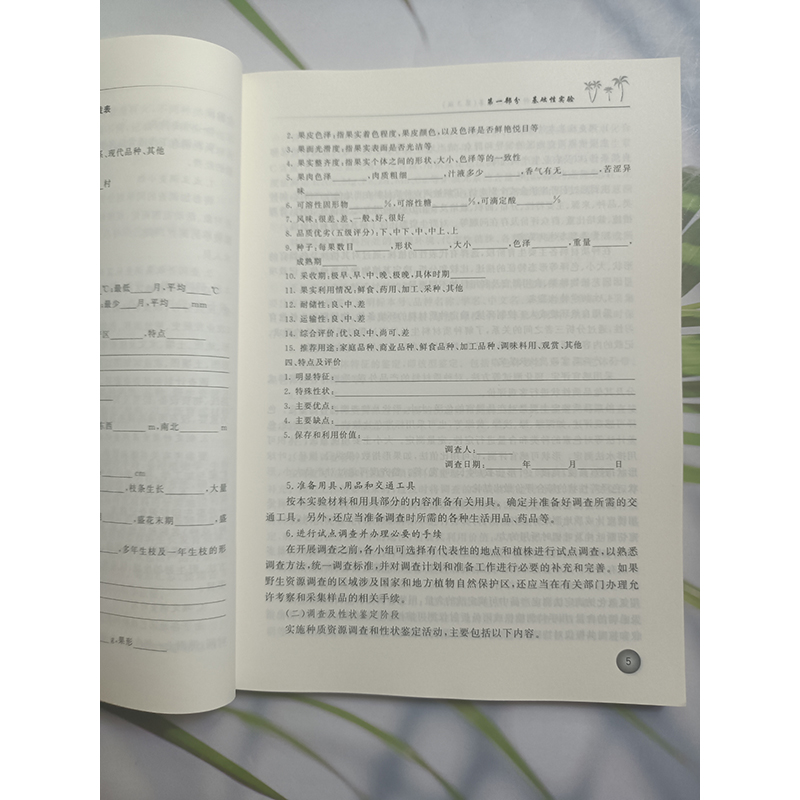 查表
、现代品种、其他
村
℃；最低____月，平均____℃
；最少____月，平均____mm
区____，特点____
东西____m，南北____m
____cm
____，枝条生长____，大量
____，盛花末期____，盛
____，多年生枝及一年生枝的形
g，果形____
第一部分 基础性实验
2. 果皮色泽：指果实着色程度，果皮颜色，以及色泽是否鲜艳悦目等
3. 果面光滑度：指果实表面是否光洁等
4. 果实整齐度：指果实个体之间的形状、大小、色泽等的一致性
5. 果肉色泽____，肉质粗细____，汁液多少____，香气有无____，苦涩异
味____
6. 可溶性固形物____%，可溶性糖____%，可滴定酸____%
7. 风味：很差、差、一般、好、很好
8. 品质优劣（五级评分）：下、中下、中、中上、上
9. 种子：每果数目____，形状____，大小____，色泽____，重量____，
成熟期____
10. 采收期：极早、早、中、晚、极晚，具体时期____
11. 果实利用情况：鲜食、药用、加工、采种、其他
12. 耐储性：良、中、差
13. 运输性：良、中、差
14. 综合评价：优、良、中、尚可、差
15. 推荐用途：家庭品种、商业品种、鲜食品种、加工品种、调味料用、观赏、其他
四、特点及评价
1. 明显特征：____
2. 特殊性状：____
3. 主要优点：____
4. 主要缺点：____
5. 保存和利用价值：____
调查人：____
调查日期：____年____月____日
5.准备用具、用品和交通工具
按本实验材料和用具部分的内容准备有关用具。确定并准备好调查所需的交
通工具。另外，还应当准备调查时所需的各种生活用品、药品等。
6.进行试点调查并办理必要的手续
在开展调查之前，各小组可选择有代表性的地点和植株进行试点调查，以熟悉
调查方法，统一调查标准，并对调查计划和准备工作进行必要的补充和完善。如果
野生资源调查的区域涉及国家和地方植物自然保护区，还应当在有关部门办理允
许考察和采集样品的相关手续。
（二）调查及性状鉴定阶段
实施种质资源调查和性状鉴定活动，主要包括以下内容。
5